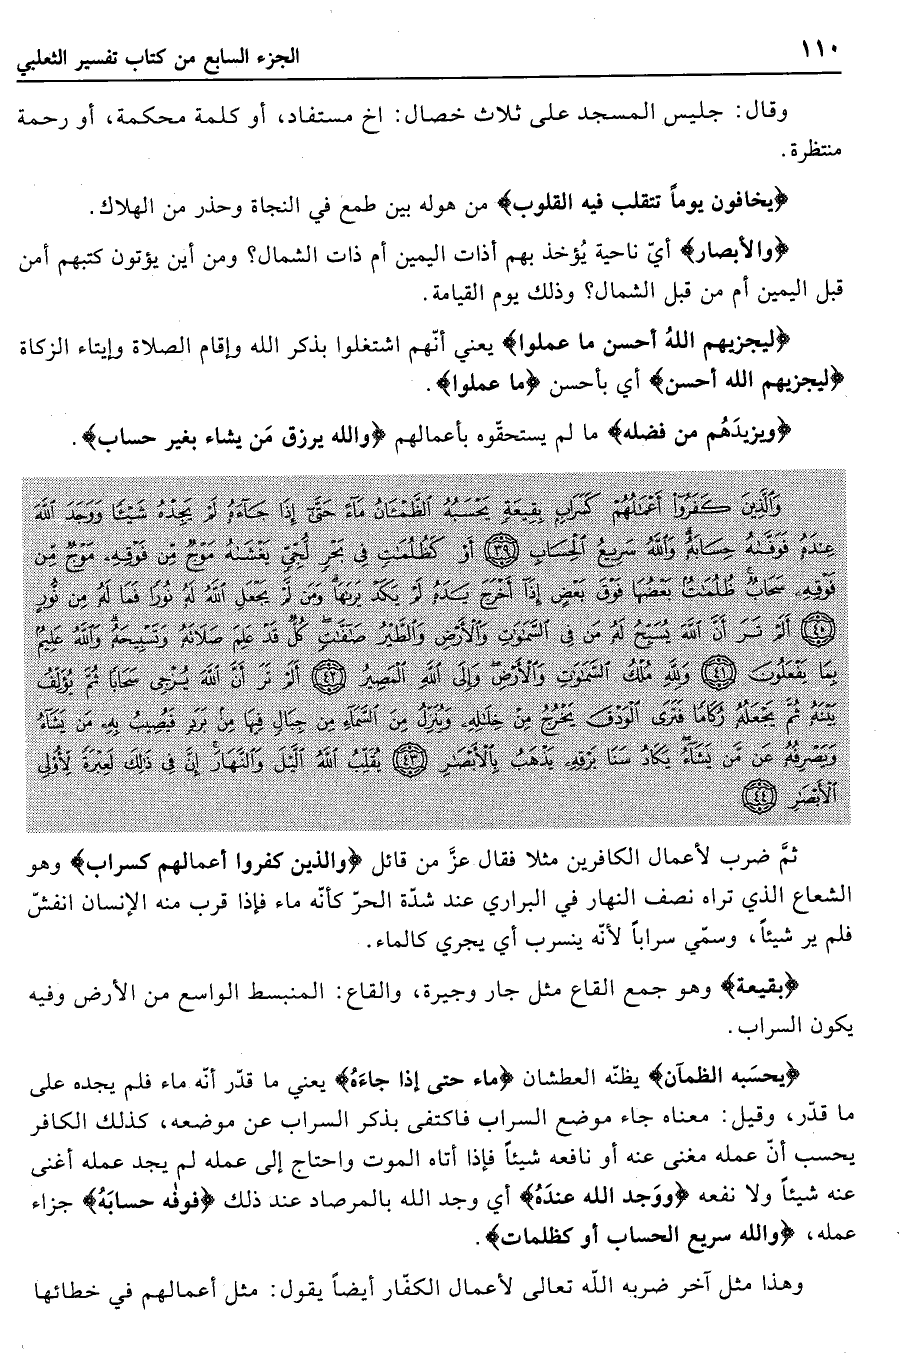 ١١٠ الجزء السابع من كتاب تفسير الثعلبي
وقال: جليس المسجد على ثلاث خصال: اخ مستفاد، أو كلمة محكمة، أو رحمة
منتظرة.
﴿يخافون يوماً تتقلب فيه القلوب﴾ من هوله بين طمع في النجاة وحذر من الهلاك.
﴿والأبصار﴾ أيّ ناحية يُؤخذ بهم أذات اليمين أم ذات الشمال؟ ومن أين يؤتون كتبهم أمن
قبل اليمين أم من قبل الشمال؟ وذلك يوم القيامة.
﴿ليجزيهم اللهُ أحسن ما عملوا﴾ يعني أنّهم اشتغلوا بذكر الله وإقام الصلاة وإيتاء الزكاة
﴿ليجزيهم الله أحسن﴾ أي بأحسن ﴿ما عملوا﴾.
﴿ويزيدَهُم من فضله﴾ ما لم يستحقّوه بأعمالهم ﴿والله يرزق مَن يشاء بغير حساب﴾.
وَٱلَّذِينَ كَفَرُوٓا۟ أَعْمَٰلُهُمْ كَسَرَابٍۭ بِقِيعَةٍ يَحْسَبُهُ ٱلظَّمْـَٔانُ مَآءً حَتَّىٰٓ إِذَا جَآءَهُۥ لَمْ يَجِدْهُ شَيْـًٔا وَوَجَدَ ٱللَّهَ
عِندَهُۥ فَوَفَّىٰهُ حِسَابَهُۥ وَٱللَّهُ سَرِيعُ ٱلْحِسَابِ ﴿٣٩﴾ أَوْ كَظُلُمَٰتٍ فِى بَحْرٍ لُّجِّىٍّ يَغْشَىٰهُ مَوْجٌ مِّن فَوْقِهِۦ مَوْجٌ مِّن
فَوْقِهِۦ سَحَابٌ ظُلُمَٰتٌۢ بَعْضُهَا فَوْقَ بَعْضٍ إِذَآ أَخْرَجَ يَدَهُۥ لَمْ يَكَدْ يَرَىٰهَا وَمَن لَّمْ يَجْعَلِ ٱللَّهُ لَهُۥ نُورًا فَمَا لَهُۥ مِن نُّورٍ
﴿٤٠﴾ أَلَمْ تَرَ أَنَّ ٱللَّهَ يُسَبِّحُ لَهُۥ مَن فِى ٱلسَّمَٰوَٰتِ وَٱلْأَرْضِ وَٱلطَّيْرُ صَٰٓفَّٰتٍ كُلٌّ قَدْ عَلِمَ صَلَاتَهُۥ وَتَسْبِيحَهُۥ وَٱللَّهُ عَلِيمٌۢ
بِمَا يَفْعَلُونَ ﴿٤١﴾ وَلِلَّهِ مُلْكُ ٱلسَّمَٰوَٰتِ وَٱلْأَرْضِ وَإِلَى ٱللَّهِ ٱلْمَصِيرُ ﴿٤٢﴾ أَلَمْ تَرَ أَنَّ ٱللَّهَ يُزْجِى سَحَابًا ثُمَّ يُؤَلِّفُ
بَيْنَهُۥ ثُمَّ يَجْعَلُهُۥ رُكَامًا فَتَرَى ٱلْوَدْقَ يَخْرُجُ مِنْ خِلَٰلِهِۦ وَيُنَزِّلُ مِنَ ٱلسَّمَآءِ مِن جِبَالٍ فِيهَا مِنۢ بَرَدٍ فَيُصِيبُ بِهِۦ مَن يَشَآءُ
وَيَصْرِفُهُۥ عَن مَّن يَشَآءُ يَكَادُ سَنَا بَرْقِهِۦ يَذْهَبُ بِٱلْأَبْصَٰرِ ﴿٤٣﴾ يُقَلِّبُ ٱللَّهُ ٱلَّيْلَ وَٱلنَّهَارَ إِنَّ فِى ذَٰلِكَ لَعِبْرَةً لِّأُو۟لِى
ٱلْأَبْصَٰرِ ﴿٤٤﴾
ثمَّ ضرب لأعمال الكافرين مثلا فقال عزَّ من قائل ﴿والذين كفروا أعمالهم كسراب﴾ وهو
الشعاع الذي تراه نصف النهار في البراري عند شدّة الحرّ كأنّه ماء فإذا قرب منه الإنسان انفشّ
فلم ير شيئاً، وسمّي سراباً لأنّه ينسرب أي يجري كالماء.
﴿بقيعة﴾ وهو جمع القاع مثل جار وجيرة، والقاع: المنبسط الواسع من الأرض وفيه
يكون السراب.
﴿يحسَبه الظمآن﴾ يظنّه العطشان ﴿ماء حتى إذا جاءَهُ﴾ يعني ما قدّر أنّه ماء فلم يجده على
ما قدّر، وقيل: معناه جاء موضع السراب فاكتفى بذكر السراب عن موضعه، كذلك الكافر
يحسب أنّ عمله مغنى عنه أو نافعه شيئاً فإذا أتاه الموت واحتاج إلى عمله لم يجد عمله أغنى
عنه شيئاً ولا نفعه ﴿ووَجد الله عندَهُ﴾ أي وجد الله بالمرصاد عند ذلك ﴿فوفّٰه حسابَهُ﴾ جزاء
عمله، ﴿والله سريع الحساب أو كظلمات﴾.
وهذا مثل آخر ضربه اللّه تعالى لأعمال الكفّار أيضاً يقول: مثل أعمالهم في خطائها